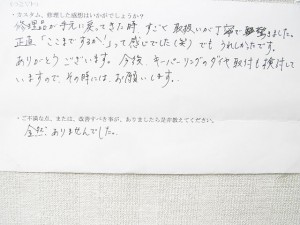 ・カスタム、修理した感想はいかがでしょうか？
修理品が手元に戻ってきた時、すごく取扱いが丁寧で驚きました。
正直「ここまでするか」って感じでした(笑)でもうれしかったです。
ありがとうございます。今後、キーパーリングのダイヤ取付も検討して
いますので、その時には、お願いします。
・ご不満な点、または、改善すべき事が、ありましたら是非教えてください。
全然ありませんでした。